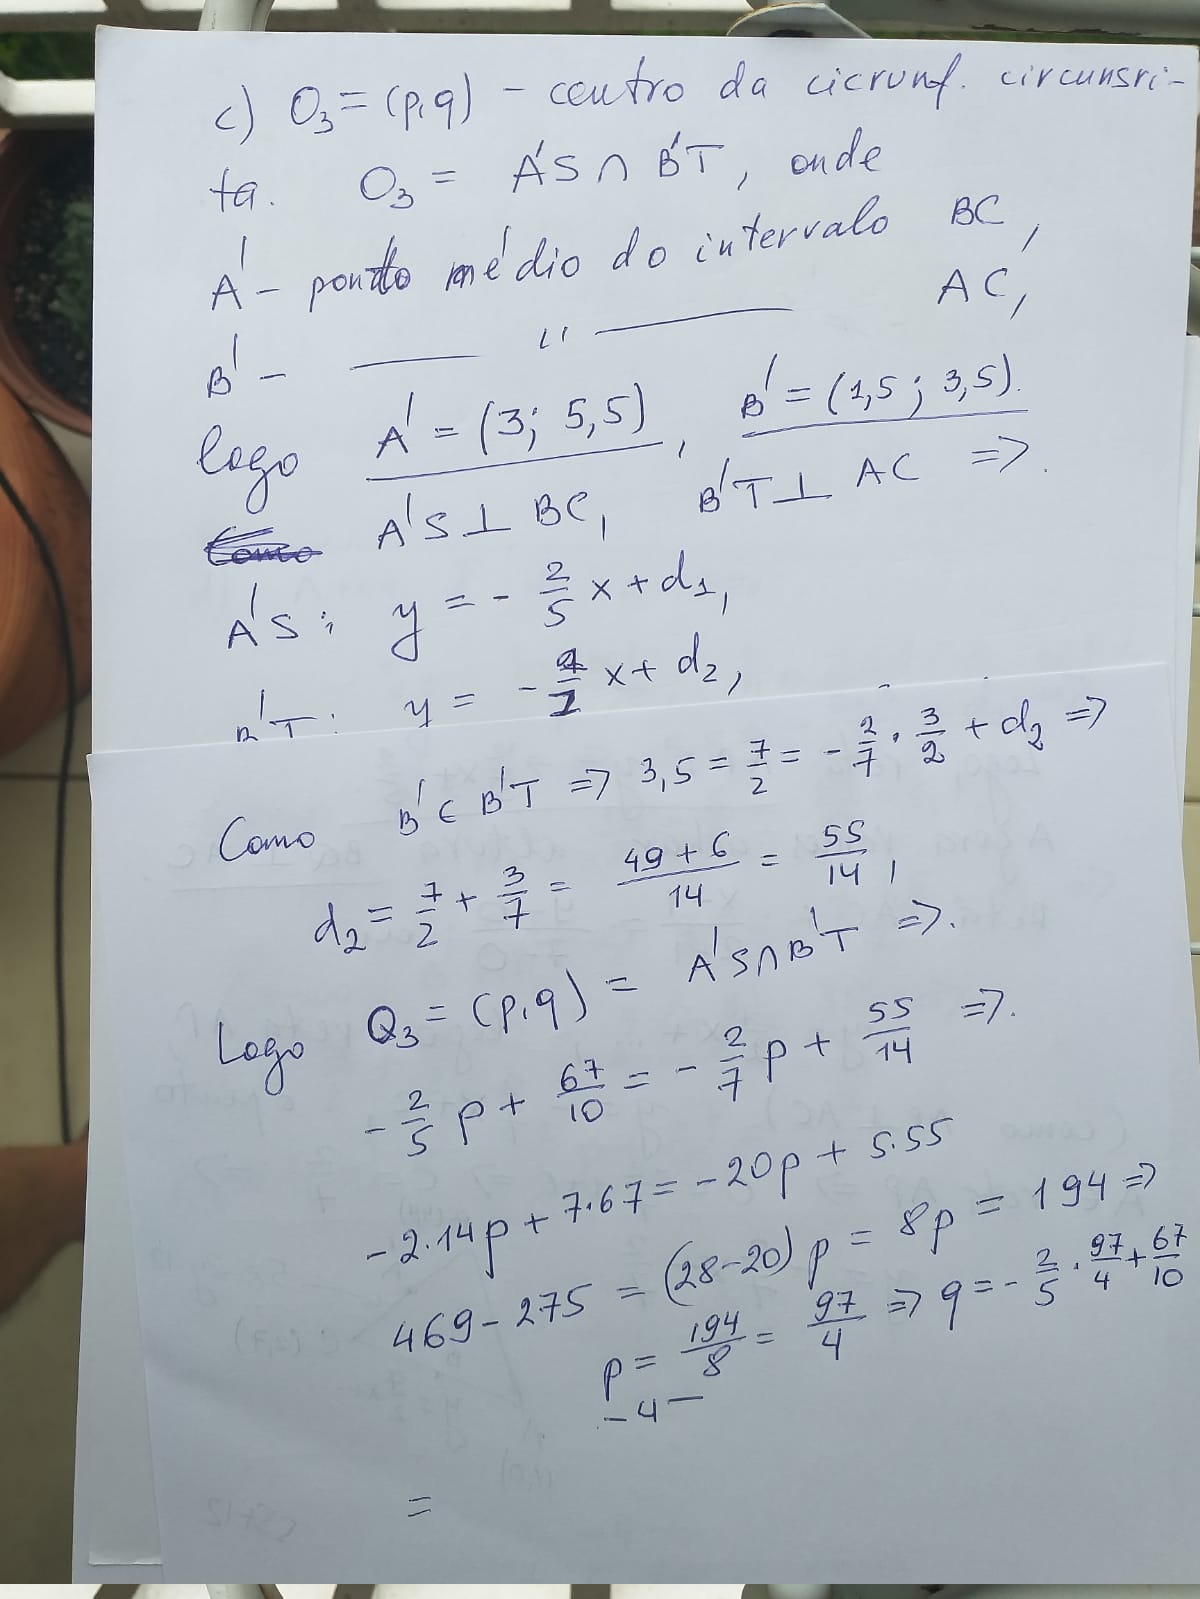 c) O₃ = (p, q) – centro da cicrunf. circunsri-
ta. O₃ = A'S ∩ B'T, onde
A' – ponto médio do intervalo BC,
B' – ——— " ——— AC,
logo A' = (3; 5,5), B' = (1,5; 3,5).
A'S ⊥ BC, B'T ⊥ AC =>.
A'S: y = - 2/5 x + d₁,
B'T: y = - 2/7 x + d₂,
Como B' ∈ B'T => 3,5 = 7/2 = - 2/7 · 3/2 + d₂ =>
d₂ = 7/2 + 3/7 = (49 + 6)/14 = 55/14,
Logo O₃ = (p, q) = A'S ∩ B'T =>.
- 2/5 p + 67/10 = - 2/7 p + 55/14 =>.
-2·14p + 7·67 = -20p + 5·55
469 - 275 = (28-20) p = 8p = 194 =>
p = 194/8 = 97/4 => q = - 2/5 · 97/4 + 67/10
- 4 -
=